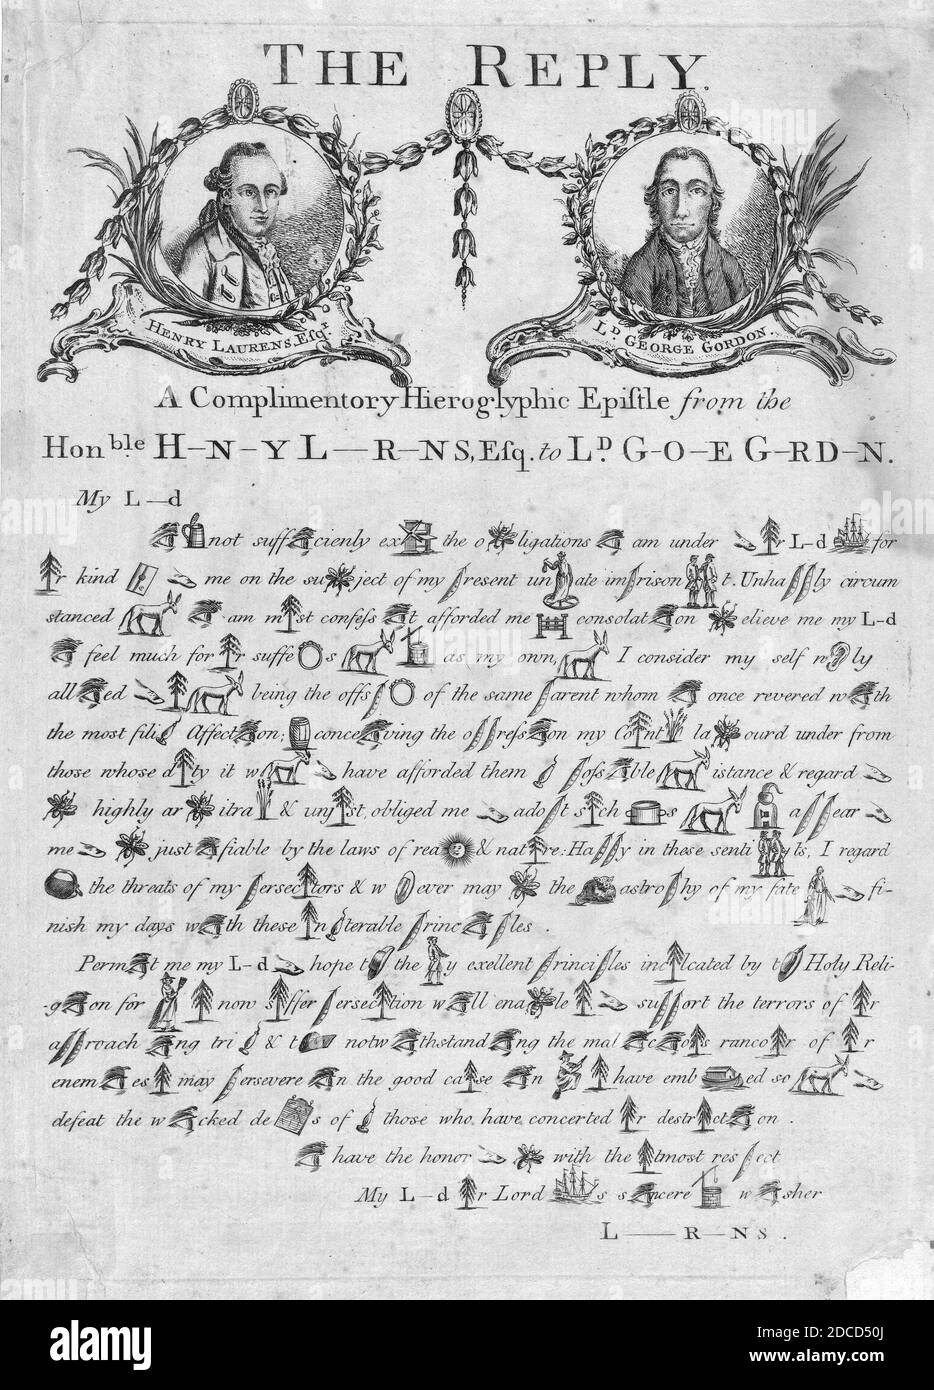 THE REPLY.
HENRY LAURENS, Esqr.
LD. GEORGE GORDON.
A Complimentory Hieroglyphic Epiſtle from the
Honble. H–N–Y L—R–NS, Eſq. to LD. G–O–E G–RD–N.
My L—d
not suff cienly ex the o ligations am under r L-d for
r kind me on the su ject of my resent un ate im rison t. Unha ly circum
stanced am m st confess t afforded me consolat on elieve me my L-d
feel much for r suffe s as my own, I consider my self n ly
all ed being the offs of the same arent whom once revered w th
the most fili Affect on; conce ving the o ress on my Co nt la ourd under from
those whose d ty it w have afforded them oss ble istance & regard
highly ar itra & unj st, obliged me ado t s ch s a ear
me just fiable by the laws of rea & nat re: Ha y in these senti ts, I regard
the threats of my ersec tors & w ever may the astro hy of my fate fi-
nish my days w th these n terable rinc les .
Perm t me my L-d hope t the y exellent rinci les inc lcated by t Holy Reli-
-g on for now s ffer ersec tion w ll ena le su ort the terrors of r
a roach ng tri & t notw thstand ng the mal c o s ranco r of r
enem es may ersevere n the good ca se n have emb ed so
defeat the w cked de s of those who have concerted r destr ct on .
have the honor with the tmost res ect
My L—d r Lord s s ncere w sher
L——R–NS .
alamy
Image ID: 2DCD50J
www.alamy.com